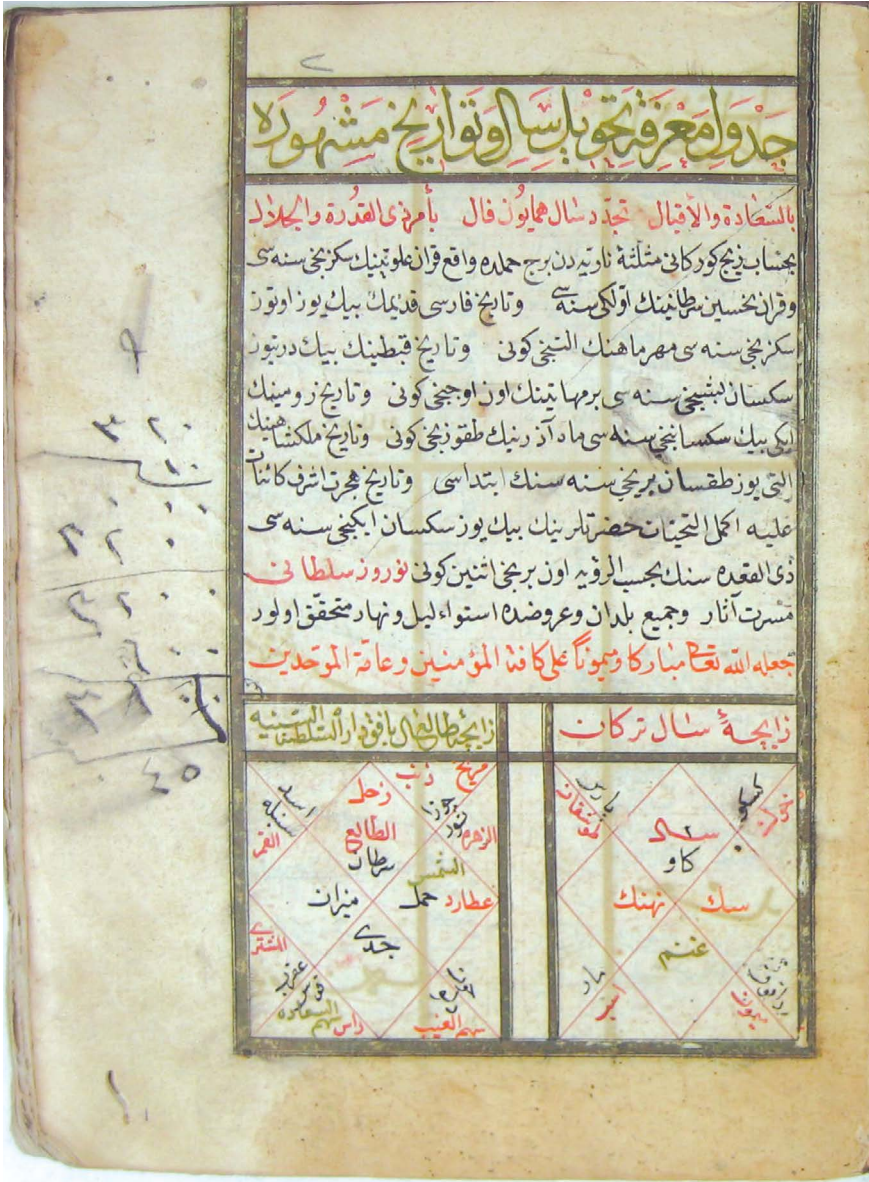 ٢
جدول معرفة تحويل سال وتواريخ مشهوره
بالسعادة والأقبال تجدد سال همايون فال بأمر ذى القدرة والجلال
بحساب زيج كوركانى مثلثۀ ناريه دن برج حملده واقع قران علويينك سكزنجى سنه سى
وقران نحسين سرطانينك اون ايكى سنه سى وتاريخ فارسى قديمك بيك يوز اوتوز
سكزنجى سنه سى مهر ماهنك التنجى كونى وتاريخ قبطينك بيك درتيوز
سكسان بشنجى سنه سى برمهاتينك اون اوجنجى كونى وتاريخ رومينك
ايكى بيك سكساننجى سنه سى ماه آذرينك طقوزنجى كونى وتاريخ ملكشاهينك
التى يوز طقسان برنجى سنه سنك ابتداسى وتاريخ هجرت اشرف كائنات
عليه اكمل التحيات حضرتلرينك بيك يوز سكسان ايكنجى سنه سى
ذى القعده سنك بحسب الرؤيه اون برنجى اثنين كونى نوروز سلطانى
مسرت آثار وجميع بلدان وعروضده استواء ليل ونهار متحقق اولور
جعله الله تعالى مباركا وميمونا على كافة المؤمنين وعامة الموحدين
زايچۀ سال تركان
زايچۀ طالع سال بافق دار السلطنة السنيه
پارس
طوشقان
سال
كاو
سك
نهنك
غنم
مار
اسب
ميمون
مريخ
ذنب
زحل
جوزا
ثور
اسد
سنبله
الزهره
الطالع
سرطان
القمر
الشمس
عطارد
حمل
ميزان
جدى
المشترى
عقرب
قوس
حوت
دلو
سهم السعاده
راس
سهم الغيب
٤٥
١